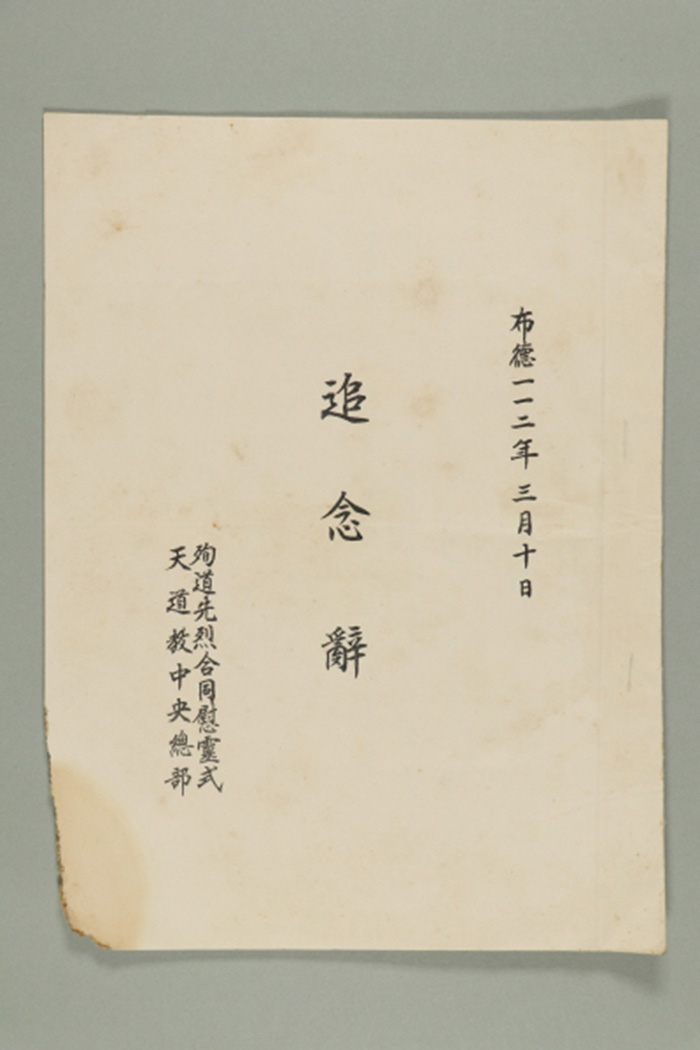 布德一一二年三月十日
追念辭
殉道先烈合同慰靈式
天道教中央總部